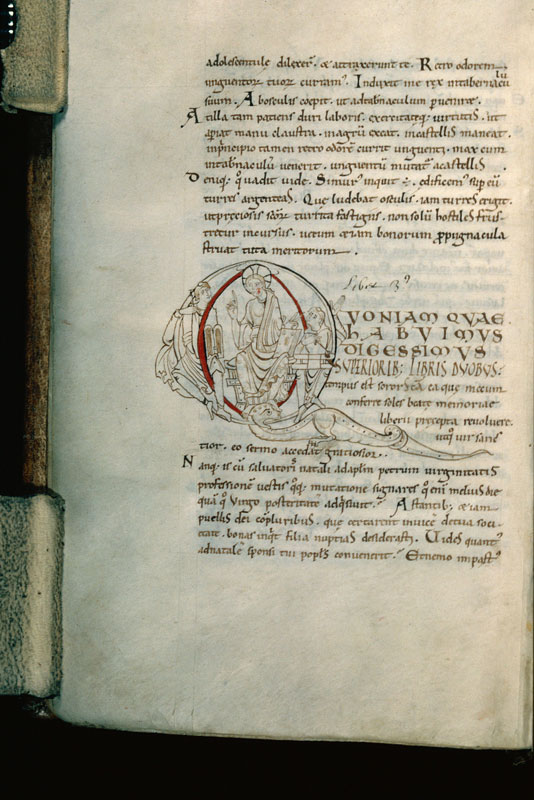 adolescentule dilexer̄. & attraxerunt te. Retro odorem
unguentorꝝ tuorꝝ curram᷒. Induxit me rex intabernacu
lū
suum. Abosculis coepit. ut adtab̄naculum pueniret.
Atilla tam patiens duri laboris. exercitatęq; uirtutis. ut
apiat manu claustra. in castellis maneat.
inprincipio tamen retro odorē currit unguenti. max cum
intab̄naculū uenerit. unguentū mutat̄ acastellis.
Deniq; quadit uide. Simur᷒ inquit ÷. edificem᷒ sup eū
turres argenteas. Que ludebat osculis. iam turres erigit.
utpreciosis scōꝝ turrita fastigiis. non solū hostiles frus
tretur incursus. uerum &iam bonorum ꝓpugnacula
struat tuta meritorum.
Liber 3᷒
QVONIAM QVAE
HABVIMVS
DIGESSIMVS
SVPERIORIB; LIBRIS DVOBVS;
tempus est soror ea que mecum
conferre soles beatę memorię
liberii precepta reuoluere.
utq; uir sanc
tior. eo sermo accedat gratiosior.
Nanq; is cū saluatoris natali adaplm̄ petrum uirginitatis
professionē uestis q; mutatione signares quo enī melius die
quā quo uirgo posteritatē adq̄siuit? Astantib; &iam
puellis dei cōpluribus. que certarent inuicē detua soci
etate. bonas inq̄t filia nuptias desiderasti. Vides quant᷒
adnatalē sponsi tui popls̄ conuenerit? Etnemo impast᷒